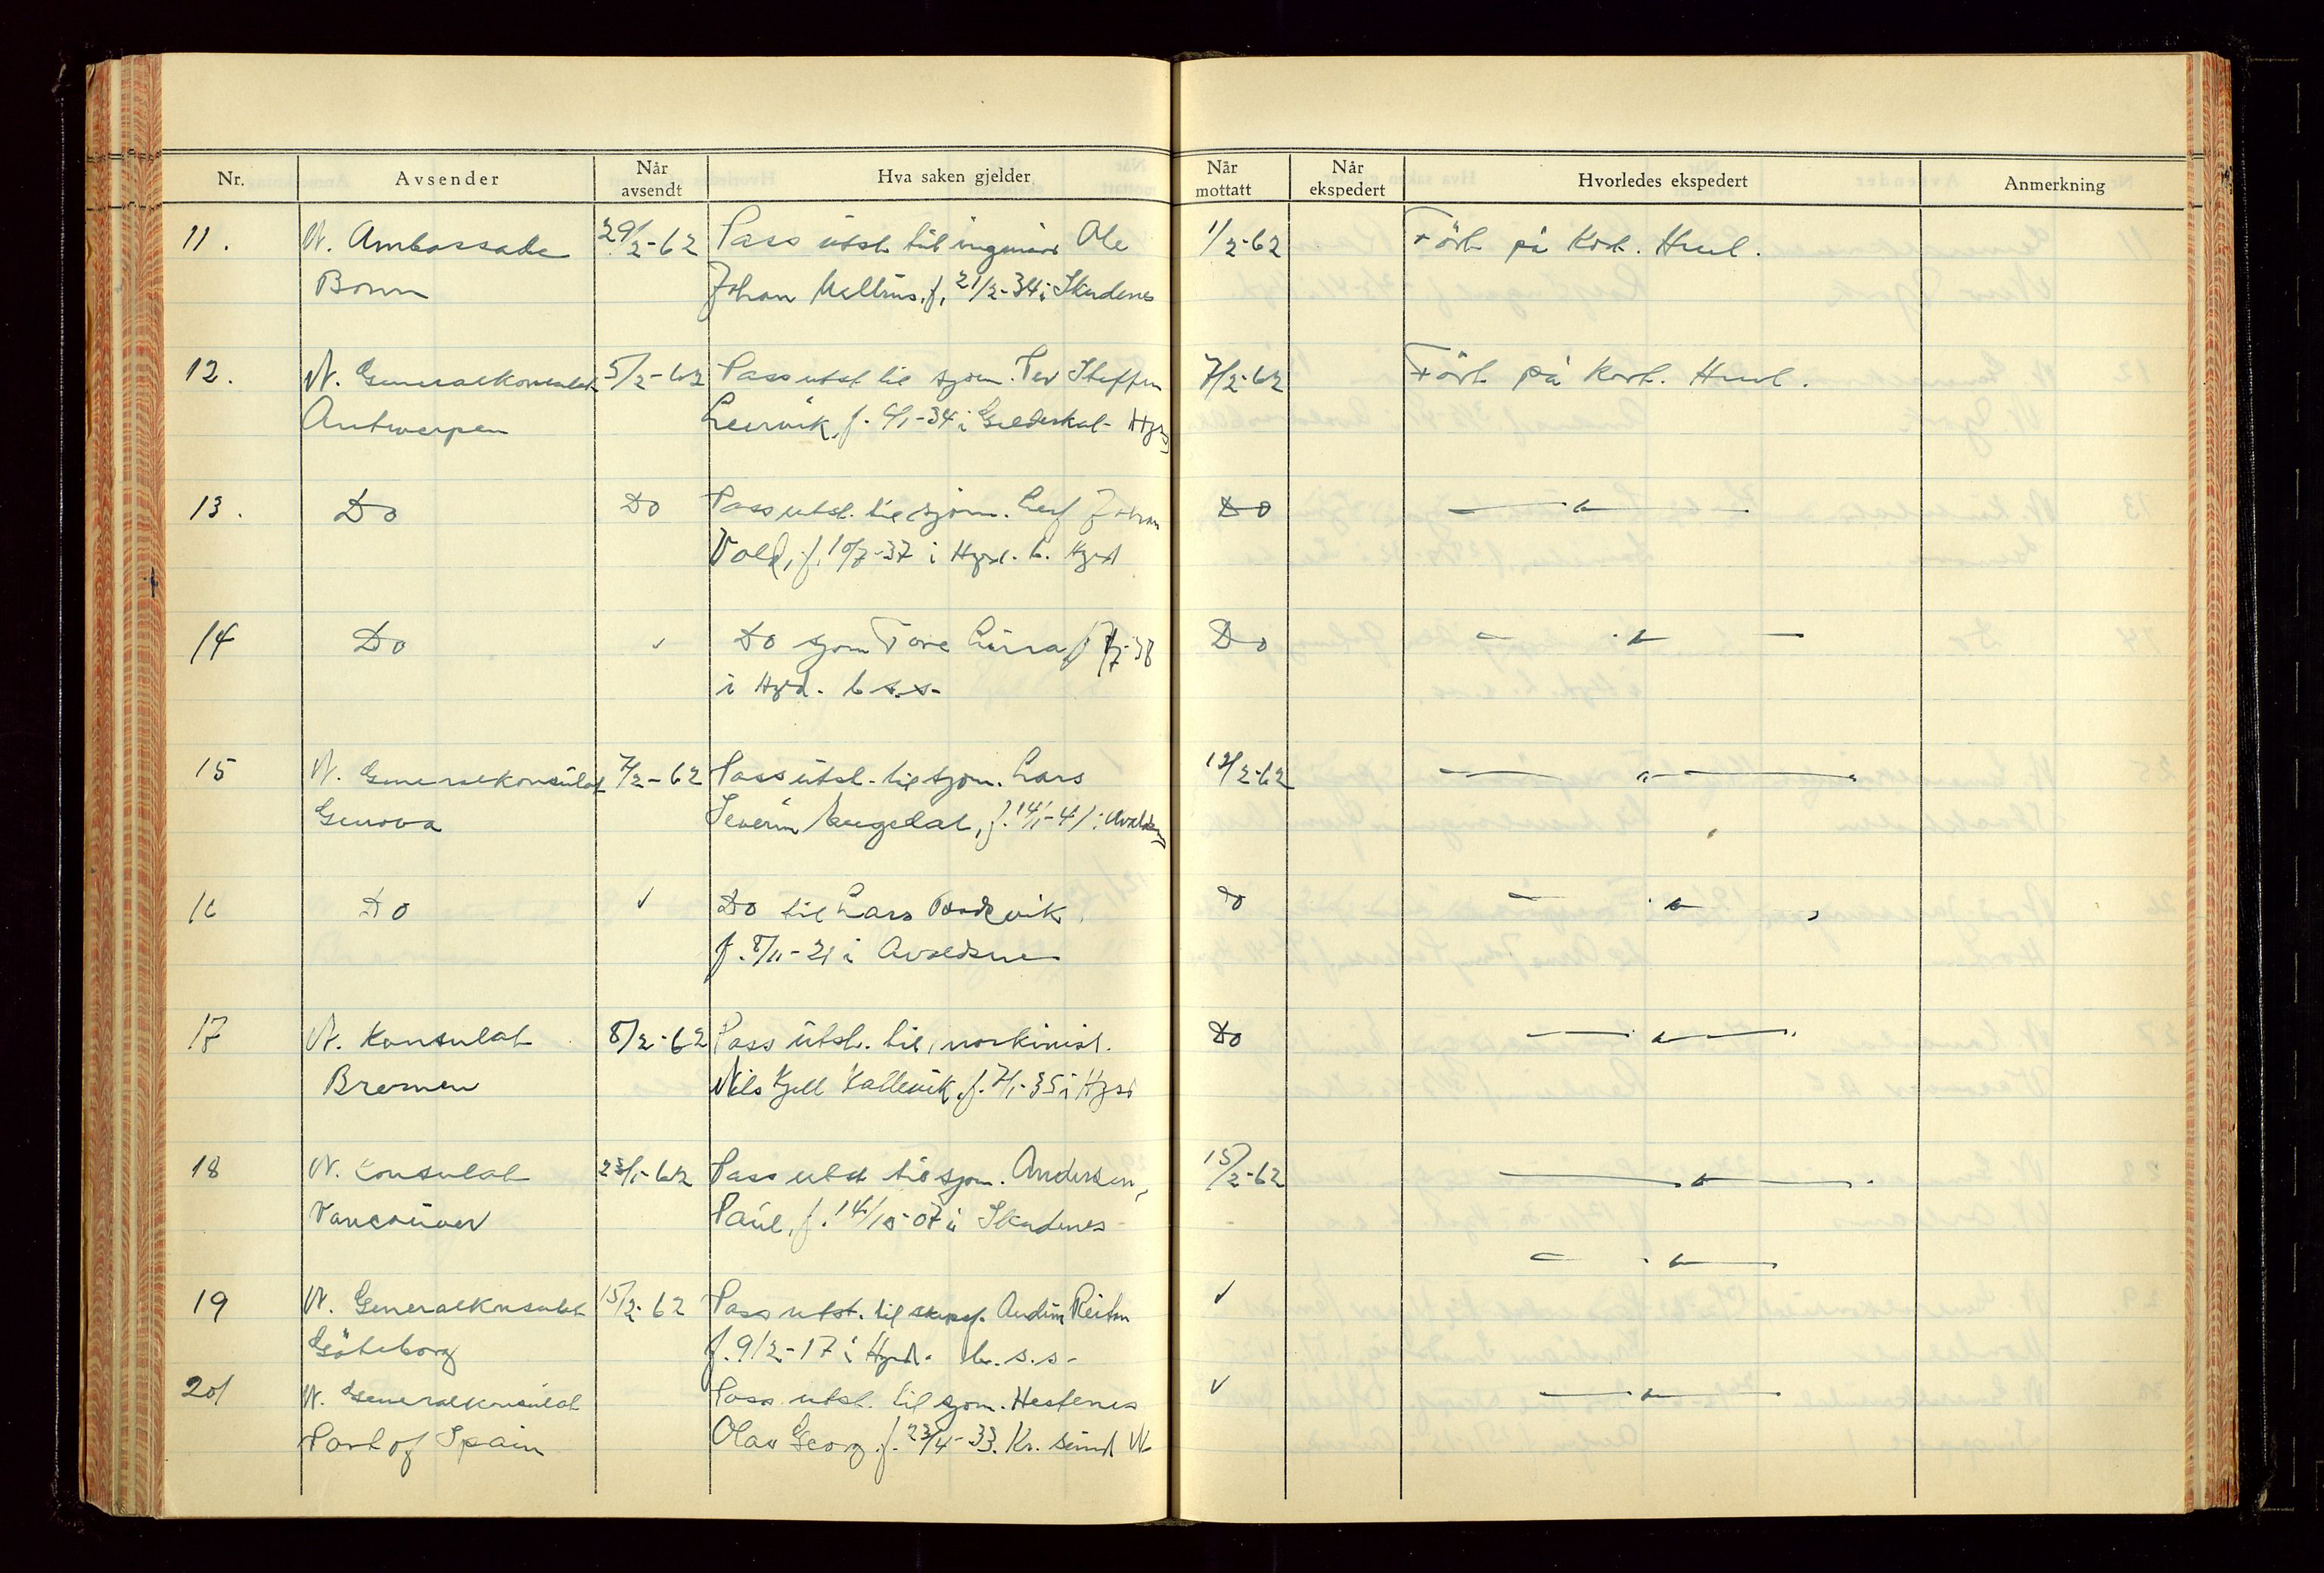 Nr. Avsender Når avsendt Hva saken gjelder Når mottatt Når ekspedert Hvorledes ekspedert Anmerkning
11. N. Ambassade 29/2-62 Pass utst. til ingeniør Ole 1/2-62 Fört på Kort. Hvrl.
Bonn Johan f. 21/2-34 i Skudenes
12. N. Generalkonsulat 5/2-62 Pass utst til sjøm. Per Steffen 7/2-62 Fört på Kort. Hvrl.
Antwerpen Leirvik, f. 6/1-34 i Gildeskål - Hgsd
13. Do Do Pass utst. til sjøm. Leif Johan Do — " —
Vold, f. 10/7-37 i Hgsd. b. Hgsd
14 Do " Do sjøm Tore f 7/7-38 Do — " —
i Hgsd. b s.s.
15 N. Generalkonsulat 7/2-62 Pass utst. til sjøm. Lars 12/2-62 — " —
Genova Severin f. 14/1-41 i Avaldsnes
16 Do " Do til Lars Bordvik Do — " —
f. 8/11-21 i Avaldsnes
17 N. Konsulat 8/2-62 Pass utst. til maskinist. Do — " —
Bremen Nils Kjell Kallevik, f. 7/1-35 i Hgsd
18 N. Konsulat 23/1-62 Pass utst til sjøm. Andersen, 15/2-62 — " —
Vancouver Paul, f. 14/10-07 i Skudenes
— " —
19 N. Generalkonsulat 15/2-62 Pass utst. til skipsf. Audun Reiten "
Göteborg f. 9/2-17 i Hgsd. b. s.s.
20 N. Generalkonsulat Pass utst. til sjøm. Hestenes " — " —
Port of Spain Olav Georg f. 23/4-33. Kr. sund N